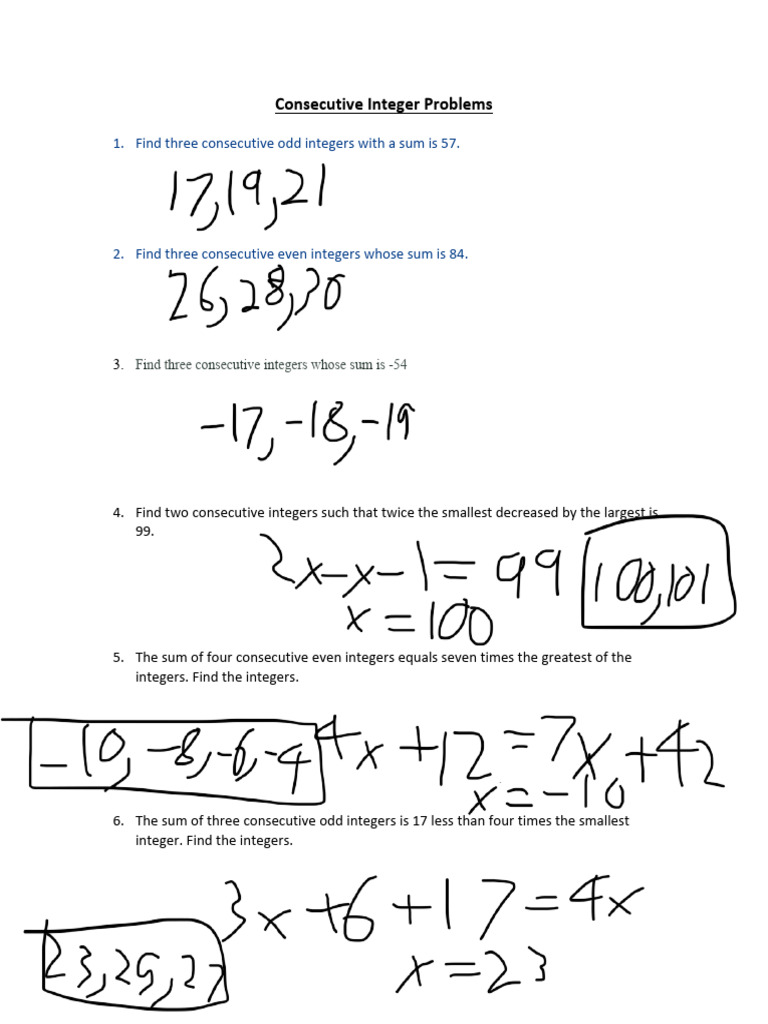 Consecutive Integer Problems
1. Find three consecutive odd integers with a sum is 57.
17, 19, 21
2. Find three consecutive even integers whose sum is 84.
26, 28, 30
3. Find three consecutive integers whose sum is -54
-17, -18, -19
4. Find two consecutive integers such that twice the smallest decreased by the largest is
99.
2x-x-1=99
x=100
100, 101
5. The sum of four consecutive even integers equals seven times the greatest of the
integers. Find the integers.
-10, -8, -6, -4
4x+12=7x+42
x=-10
6. The sum of three consecutive odd integers is 17 less than four times the smallest
integer. Find the integers.
3x+6+17=4x
x=23
23, 25, 27